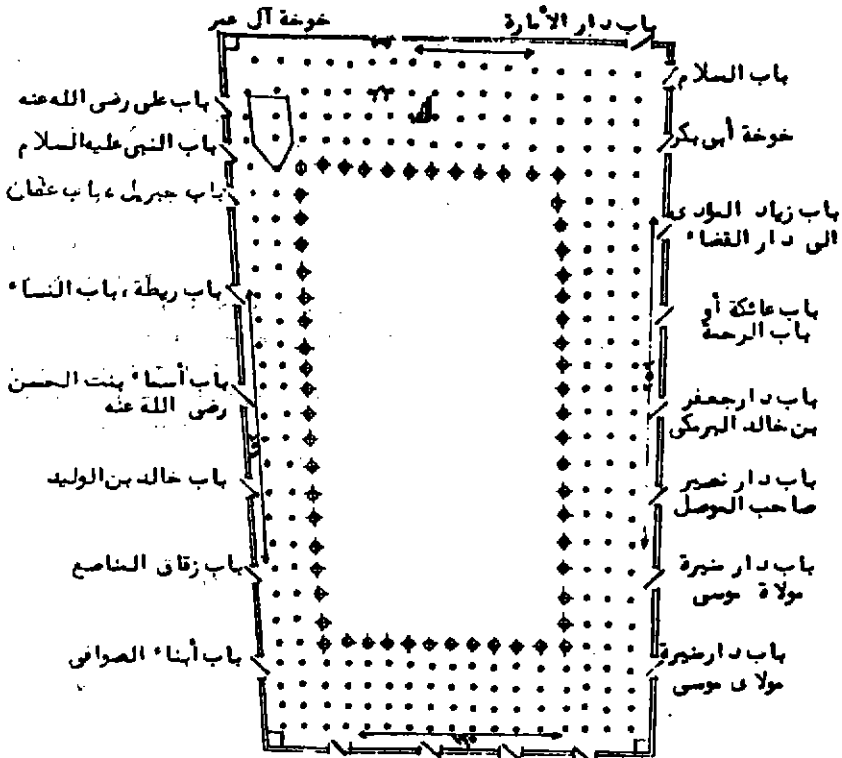 باب دار الأمارة
خوخة آل عمر
باب السلام
خوخة أبى بكر
باب زياد المؤدى
الى دار القضاء
باب عاتكة أو
باب الرحمة
باب دار جعفر
بن خالد البرمكى
باب دار نصير
صاحب الموصل
باب دار منيرة
مولاة موسى
باب دار منيرة
مولاى موسى
باب على رضى الله عنه
باب النبى عليه السلام
باب جبريل ، باب عثمان
باب ريطة ، باب النساء
باب أسماء بنت الحسن
رضى الله عنه
باب خالد بن الوليد
باب زقاق المناصع
باب أبناء الصوافى